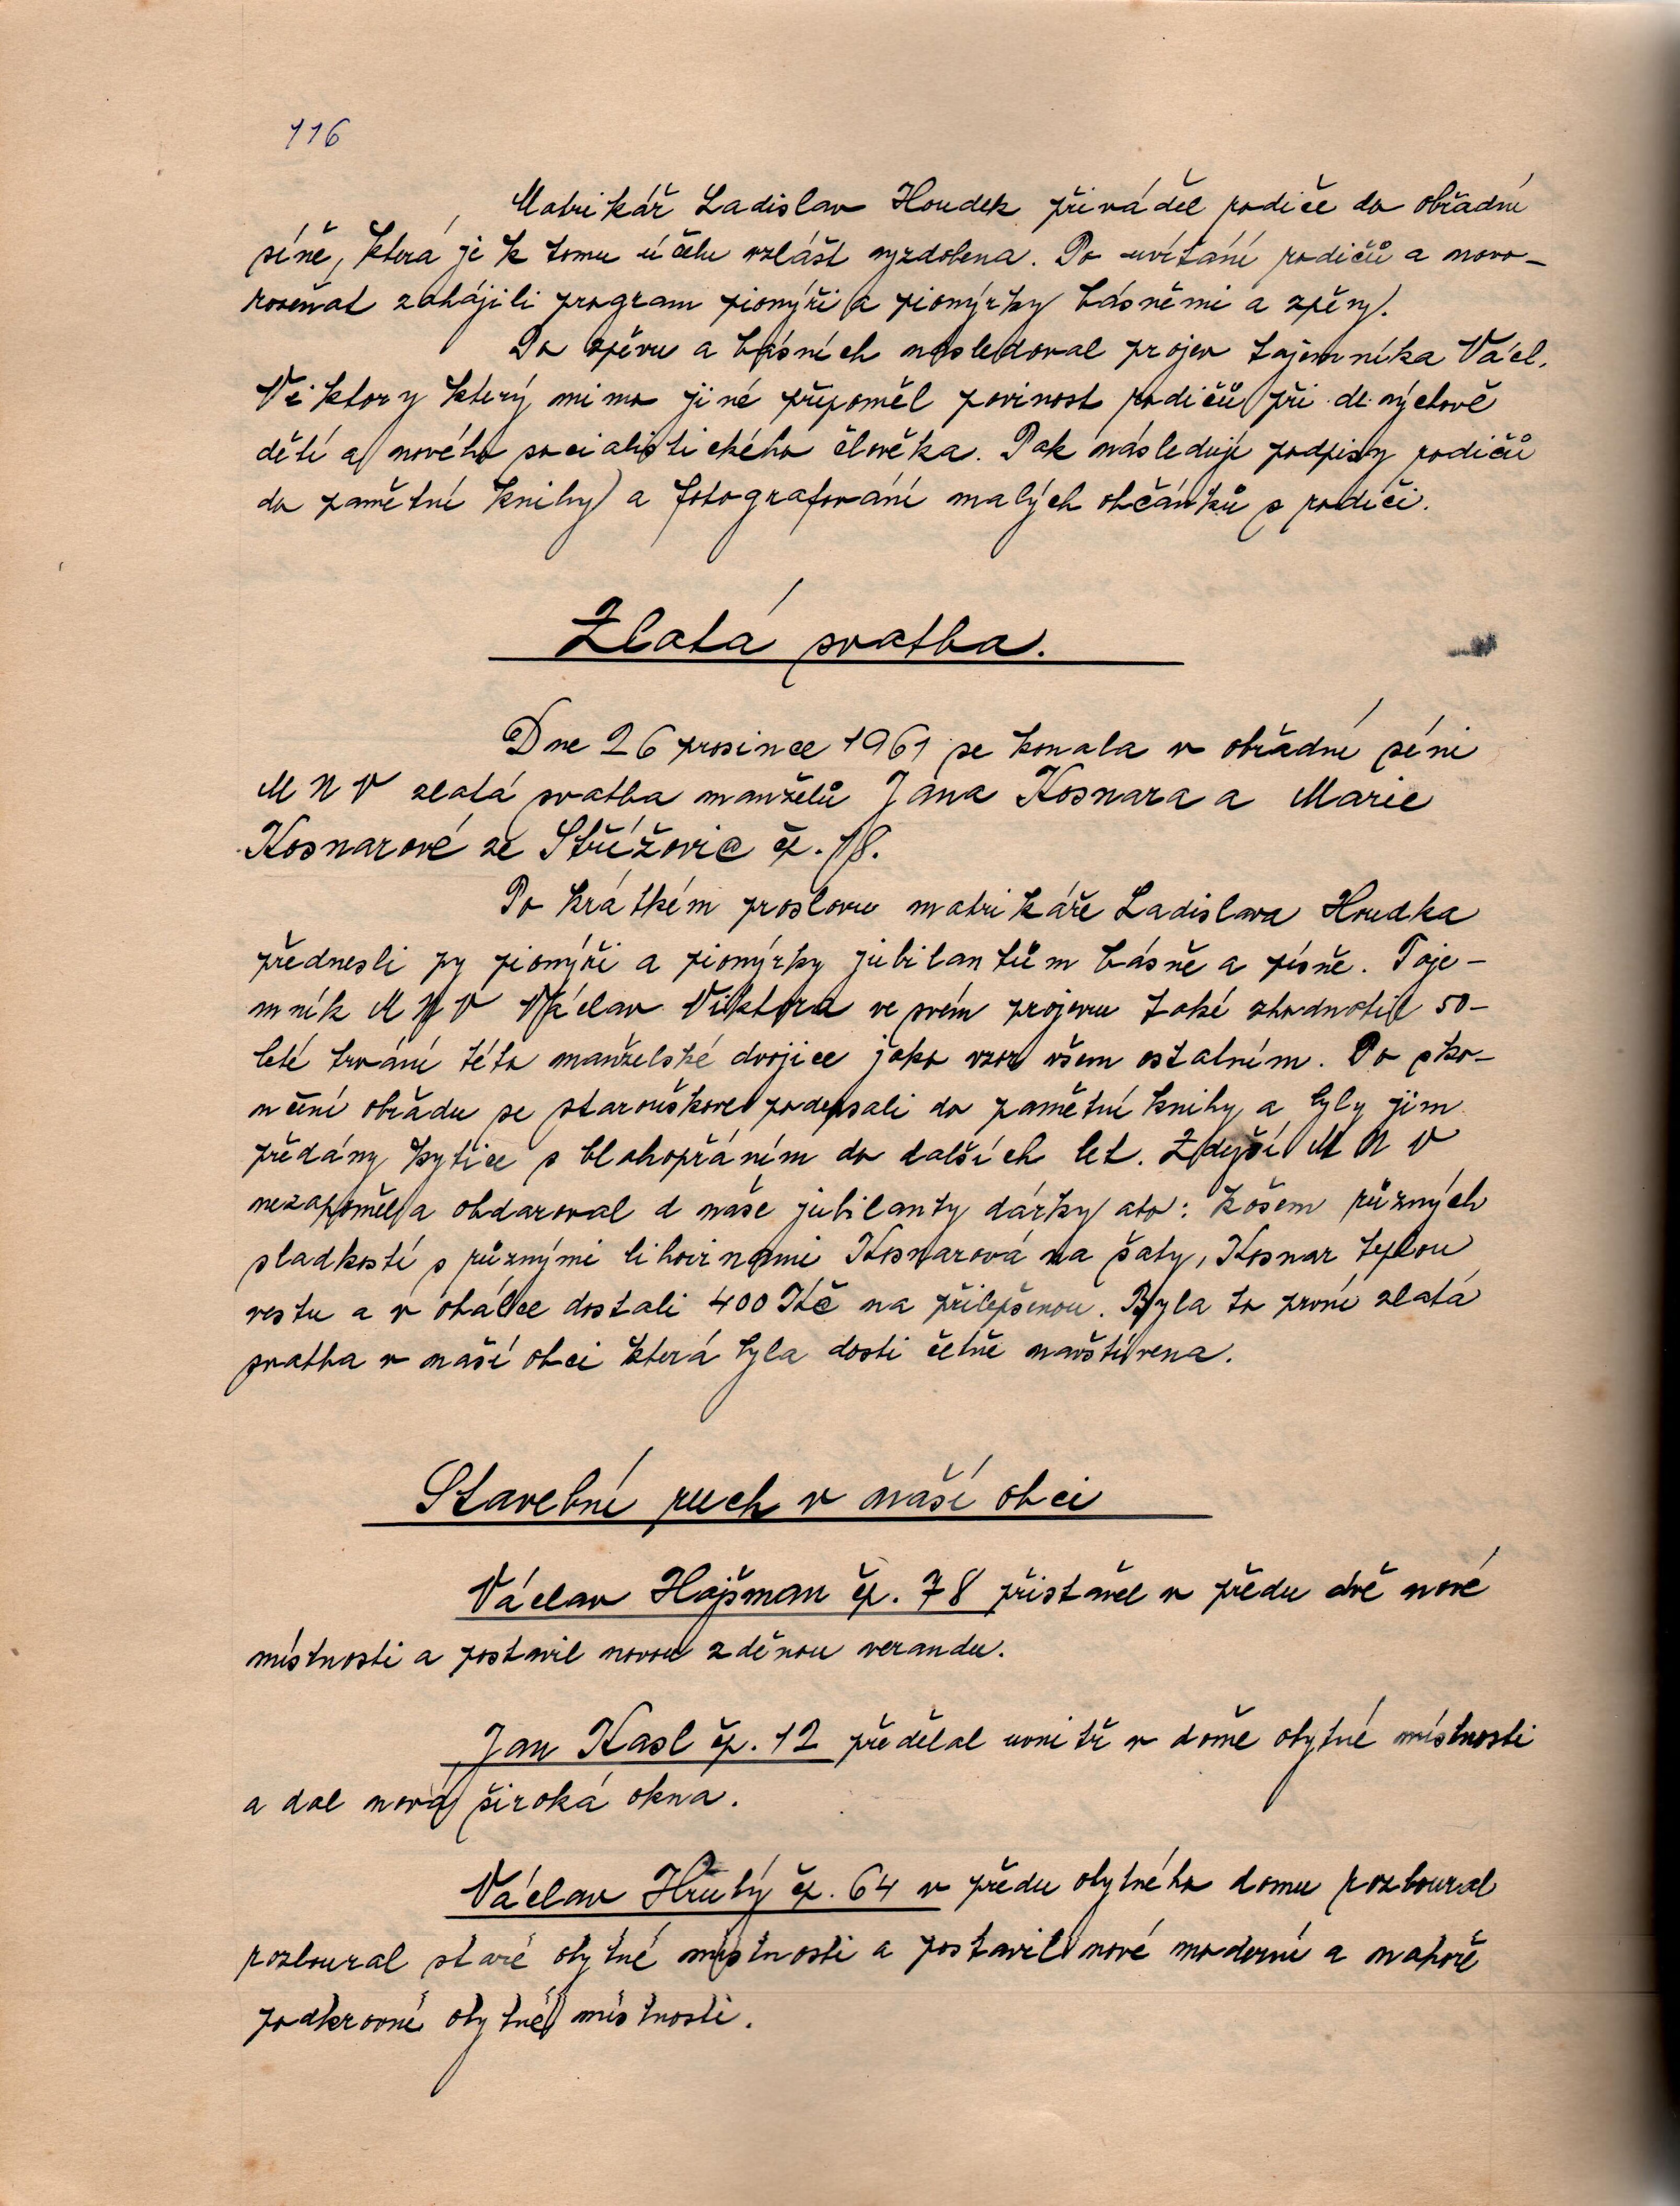 116
Matrikář Ladislav Houdek přiváděl rodiče do obřadní
síně, která je k tomu účelu vzlášt vyzdobena. Po uvítání rodičů a novo-
rozeňat zahájili program pionýři a pionýrky básněmi a zpěvy.
Po zpěvu a básních následoval projev tajemníka Václ.
Viktory který mimo jiné připoměl povinost rodičů při de výchově
dětí a nového socialistického člověka. Pak následují podpisy rodičů
do pamětní knihy a fotografování malých občánků s rodiči.
Zlatá svatba.
Dne 26 prosince 1961 se konala v obřadní síni
M N V zlatá svatba manželů Jana Kosnara a Marie
Kosnarové ze Střížovic čp. 18.
Po krátkém proslovu matrikáře Ladislava Houdka
přednesli py pionýři a pionýrky jubilantům básně a písně. Taje-
mník M N V Václav Viktora ve svém projevu také zhodnotil 50-
leté trvání této manželské dvojice jako vzor všem ostatním. Po sko-
nčení obřadu se stařouškové podepsali do pamětní knihy a byly jim
předány kytice s blahopřáním do dalších let. Zdejší M N V
nezapoměl a obdaroval d naše jubilanty dárky ato: košem různých
sladkostí s různými lihovinami Kosnarová na šaty, Kosnar teplou
vestu a v obálce dostali 400 Kč na přilepšenou. Byla to první zlatá
svatba v naší obci která byla dosti četně navštívena.
Stavební ruch v naší obci
Václav Hajšman čp. 78 přistavěl v předu dvě nové
místnosti a postavil novou zděnou verandu.
Jan Kasl čp. 12 předělal uvnitř v domě obytné místnosti
a dal nová široká okna.
Václav Hrubý čp. 64 v předu obytného domu rozboural
rozboural staré obytné místnosti a postavil nové moderní a nahoře
podkrovní obytné místnosti.